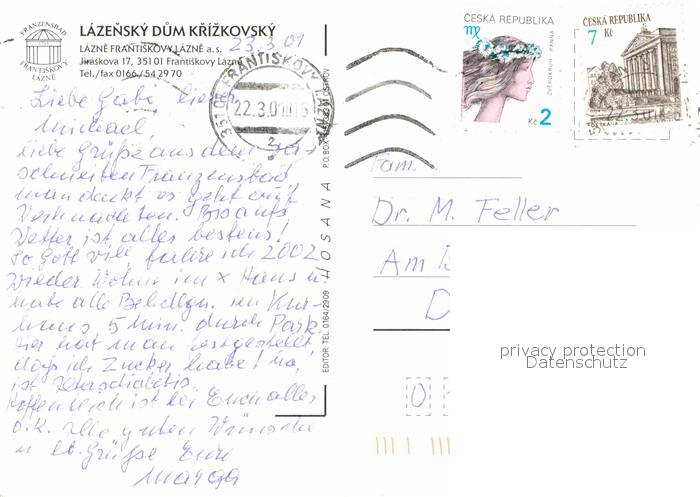 FRANZENSBAD
FRANTIŠKOVY
LÁZNĚ
LÁZEŇSKÝ DŮM KŘÍŽKOVSKÝ
LÁZNĚ FRANTIŠKOVY LÁZNĚ a.s.
Jiráskova 17, 351 01 Františkovy Lázně
Tel./fax 0166/54 29 70
23.3.01
351 01 FRANTIŠKOVY LÁZNĚ
22.3.01
2
ČESKÁ REPUBLIKA
ZVĚROKRUH - PANNA
Kč 2
ČESKÁ REPUBLIKA
7 Kč
Liebe Gabi, lieber
Michael,
liebe Grüße aus dem
schneiten Franzensbad
man denkt es geht auf
Weihnachten. Bis aufs
Wetter ist alles bestens!
So Gott will, fahre ich 2002
wieder. Wohne im X Haus u.
habe alle Behdlgn. im Kur-
haus 5 Min. durch Park.
Hier hat man festgestellt,
daß ich Zucker habe! Na,
ist Altersdiabetis.
Hoffentlich ist bei Euch alles
o.K. Alle guten Wünsche
u. lb. Grüße Eure
Marga
EDITOR TEL. 0164/2909 HOSANA P.O.BOX
Fam.
Dr. M. Feller
Am
D
0
privacy protection
Datenschutz